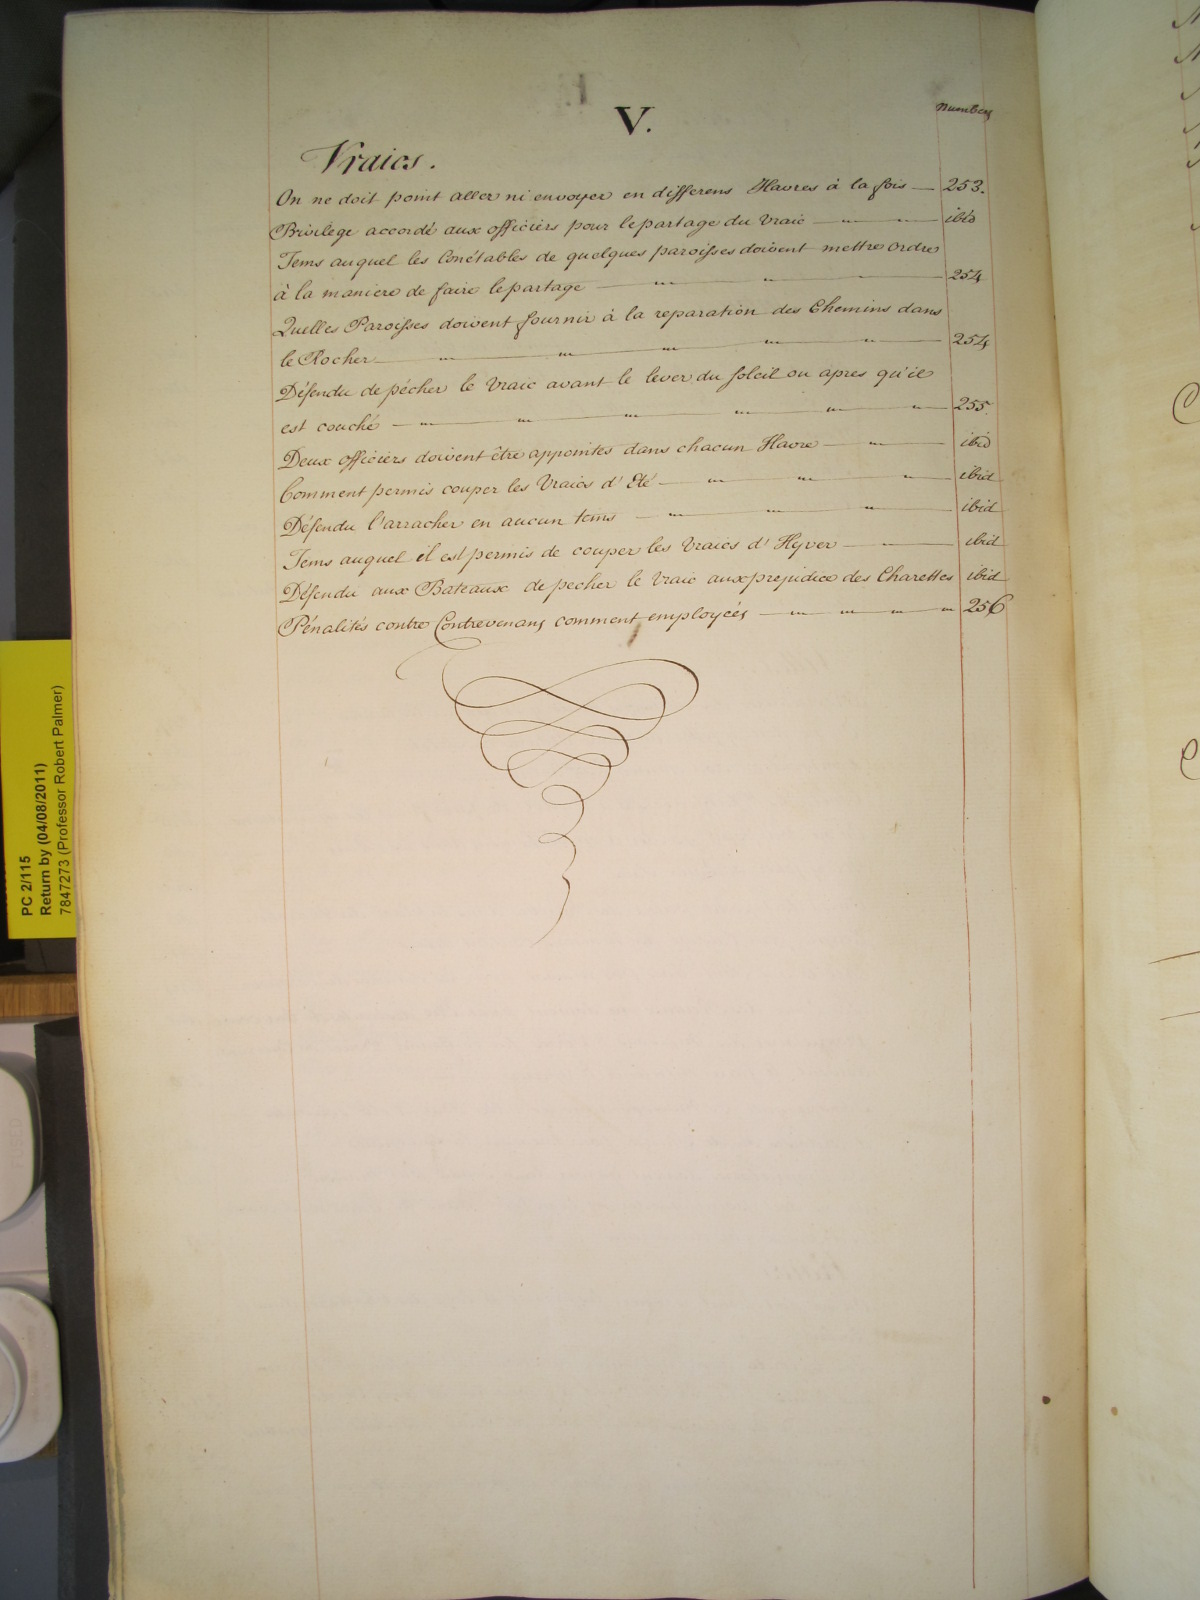 V.
Numbers
Vraics.
On ne doit point aller ni envoyer en differens Havres à la fois — 253.
Privilege accordé aux officiers pour le partage du Vraic — " — " — ibid
Tems auquel les Conétables de quelques paroisses doivent mettre ordre
à la maniere de faire le partage — " — " — 254
Quelles Paroisses doivent fournir à la reparation des Chemins dans
le Rocher — " — " — " — " — " — 254
Défendu de pécher le Vraic avant le lever du soleil ou apres qu'il
est couché — " — " — " — " — " — " — 255.
Deux officiers doivent être appointés dans chacun Havre — " — ibid
Comment permis couper les Vraics d'Eté — " — " — " — ibid
Défendu l'arracher en aucun tems — " — " — " — ibid
Tems auquel il est permis de couper les Vraics d'Hyver — " — ibid
Défendu aux Bateaux de pecher le Vraic aux prejudice des Charettes ibid
Pénalités contre Contrevenans comment employeés — " — " — " — " 256
PC 2/115
Return by (04/08/2011)
7847273 (Professor Robert Palmer)